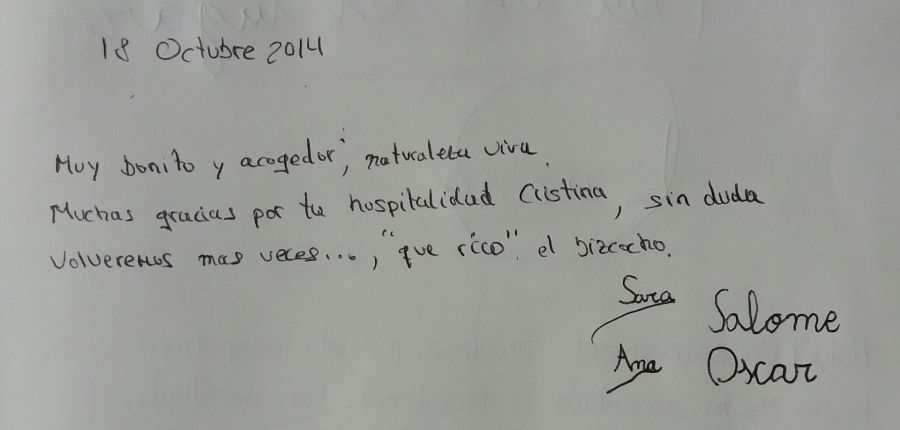 18 Octubre 2014
Muy bonito y acogedor, naturaleza viva.
Muchas gracias por tu hospitalidad Cristina, sin duda
volveremos mas veces..., "que rico" el bizcocho.
Sara Salome
Ana Oscar